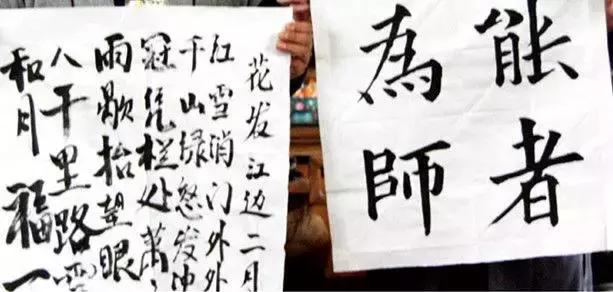 能者
為師
花发江边二月
红雪消门外外
千山绿怒发冲
冠凭栏处萧々
雨歇抬望眼
八千里路雲
和月福一